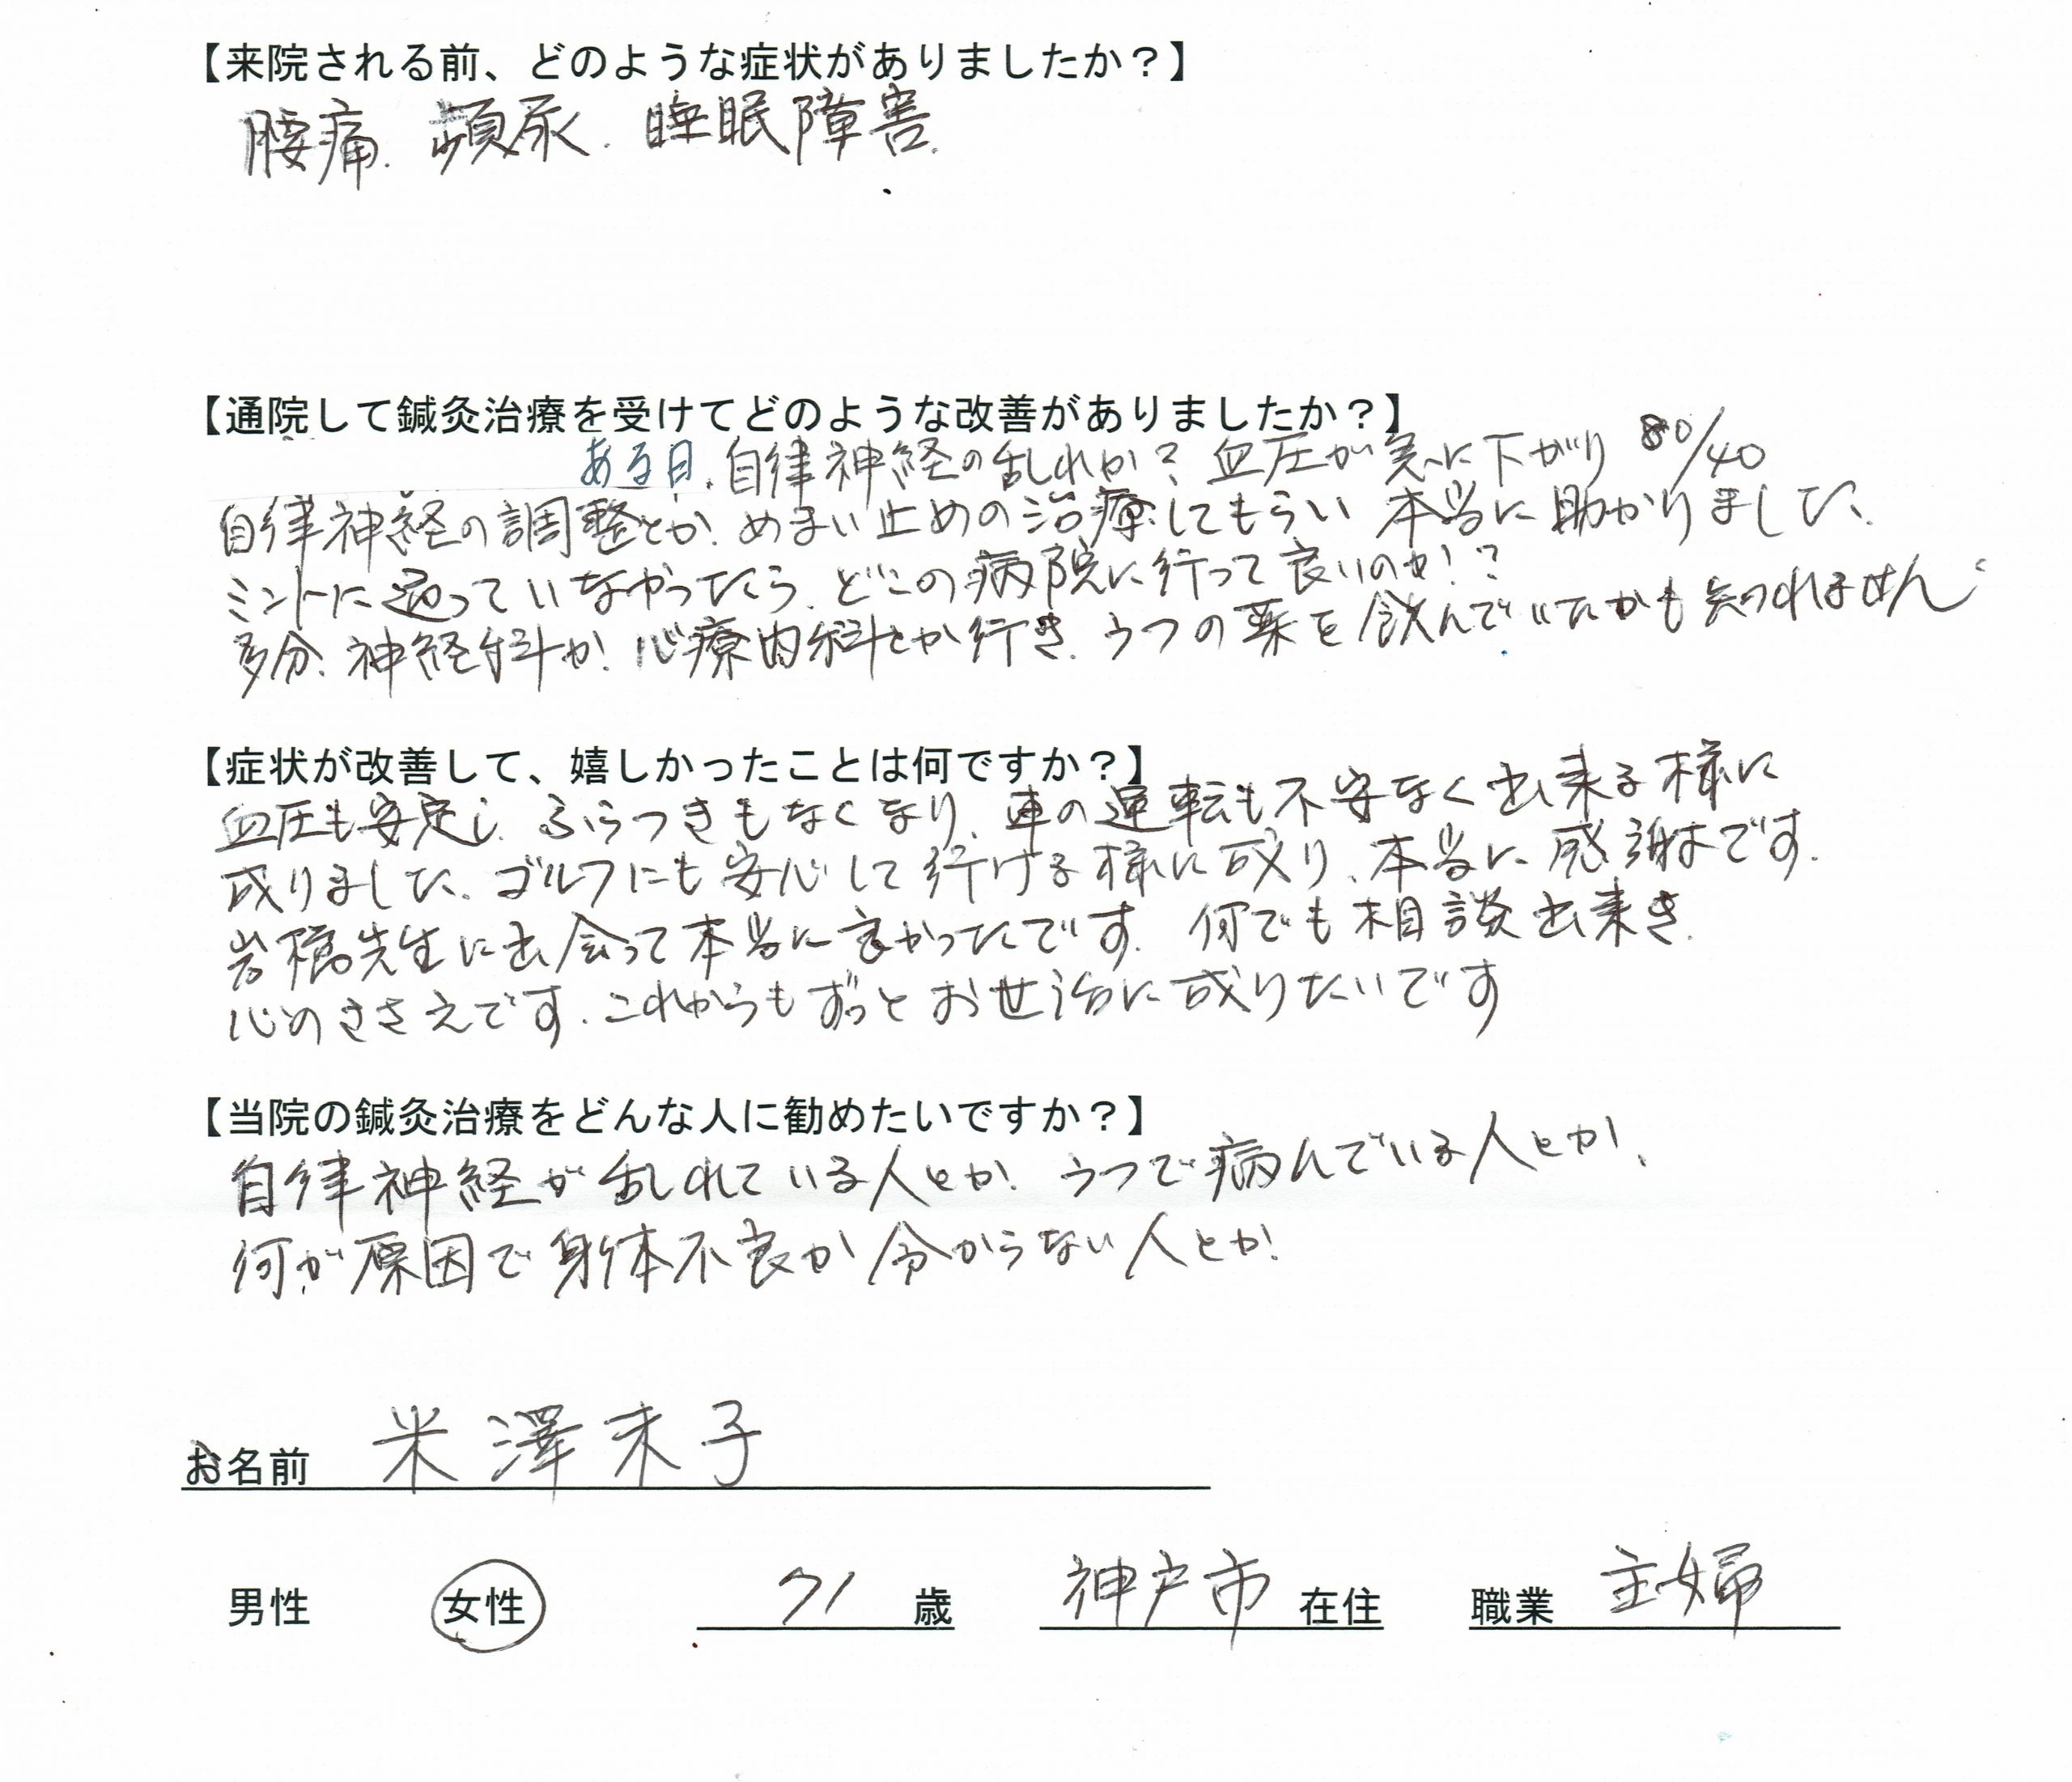 【来院される前、どのような症状がありましたか？】
腰痛. 頻尿. 睡眠障害.
【通院して鍼灸治療を受けてどのような改善がありましたか？】
ある日、自律神経の乱れか？血圧が急に下がり 80/40
自律神経の調整とか、めまい止めの治療してもらい 本当に助かりました、
ミントに通っていなかったら、どこの病院に行って良いのか！？
多分、神経科か、心療内科とか行き、うつの薬を飲んでいたかも知れません。
【症状が改善して、嬉しかったことは何ですか？】
血圧も安定し、ふらつきもなくなり、車の運転も不安なく出来る様に
成りました、ゴルフにも安心して行ける様に成り、本当に感謝です.
岩橋先生に出会って本当に良かったです. 何でも相談出来き.
心のささえです. これからもずっとお世治に成りたいです
【当院の鍼灸治療をどんな人に勧めたいですか？】
自律神経が乱れている人とか、うつで病んでいる人とか、
何が原因で身体不良か分からない人とか、
お名前 米澤未子
男性 女性 71 歳 神戸市 在住 職業 主婦